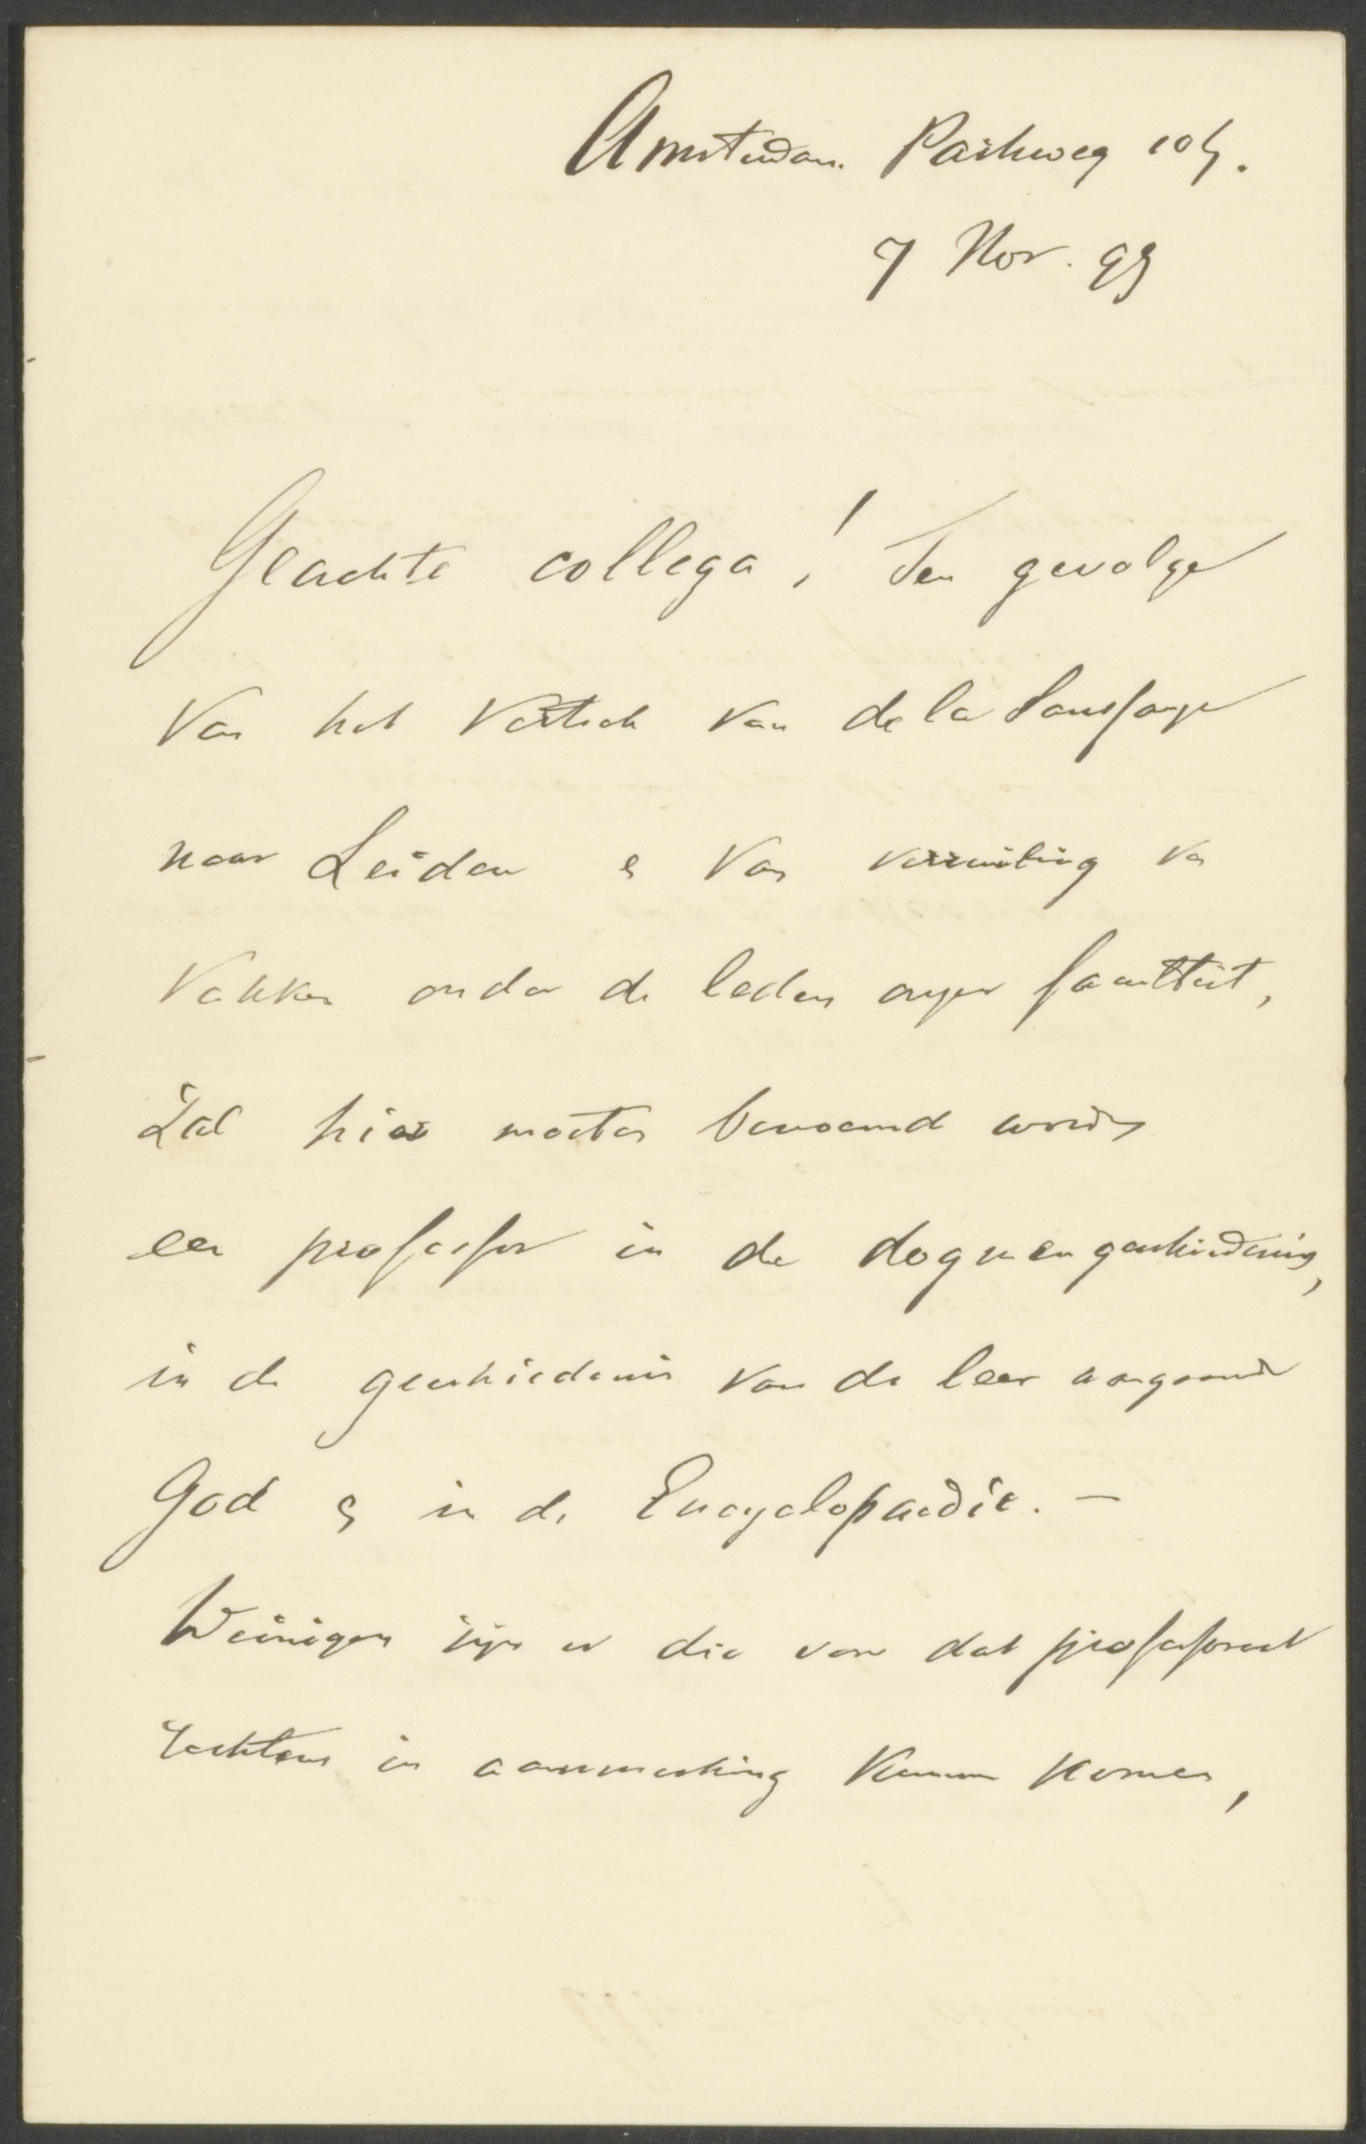 Amsterdam. Parkweg
7 Nov. 99
Geachte collega! Ten gevolge
van het vertrek van de la Saussaye
naar Leiden en van verruiling van
vakken onder de leden onzer faculteit,
zal hier moeten benoemd worden
een professor in de dogmengeschiedenis,
in de geschiedenis van de leer aangaande
God en in de Encyclopaedie. —
Weinigen zijn er die voor dat professoraat
in aanmerking kunnen komen,